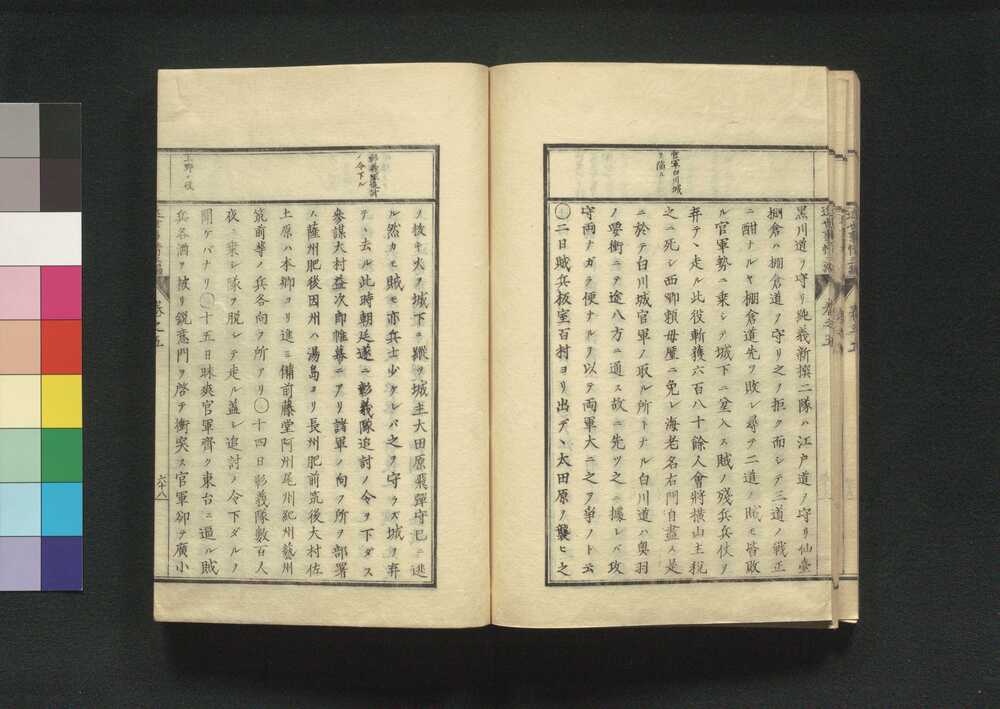 官軍白川城
ヲ陥ル
黒川道ヲ守リ純義新撰二隊ハ江戸道ヲ守リ仙臺
棚倉ハ棚倉道ヲ守リ之ヲ拒ク而シテ三道ノ戰正
ニ酣ナルヤ棚倉道先ヲ敗レ尋テ二道ノ賊モ皆敗
ル官軍勢ニ乗シテ城下ニ坌入ス賊ノ殘兵兵仗ヲ
弃テヽ走ル此役斬獲六百八十餘人會將横山主税
之ニ死シ西郷頼母厪ニ免レ海老名右門自盡ス是
ニ於テ白川城官軍ノ取ル所トナル白川道ハ奥羽
ノ要衝ニテ途八方ニ通ス故ニ先ツ之ニ據レバ攻
守両ナガラ便ナルヲ以テ両軍大ニ之ヲ爭ノト云
〇二日賊兵板室百村ヨリ出デヽ大田原ヲ襲ヒ之
彰義隊追討
ノ令下ル
上野ノ役
ノ抜キ火ヲ城下ニ縱ツ城主大田原飛騨守已ニ逃
ル然カモ賊モ亦兵士少ケレバ之ヲ守ラズ城ヲ弃
テヽ去ル此時朝廷遂ニ彰義隊追討ノ令ヲ下ダス
參謀大村益次郎帷幕ニアリ諸軍ノ向ク所ヲ部署
ス薩州肥後因州ハ湯島ヨリ長州肥前筑後大村佐
土原ハ本郷ヨリ進ミ備前藤堂阿州尾州紀州藝州
筑前等ノ兵各向ヲ所アリ〇十四日彰義隊數百人
夜ニ乗シ隊ヲ脱シテ走ル蓋シ追討ノ令下ダルヲ
聞ケバナリ〇十五日昧爽官軍齊ク東台ニ逼ル賊
兵各酒ヲ被リ鋭意門ヲ啓テ衝突ス官軍卻テ廣小
六十八